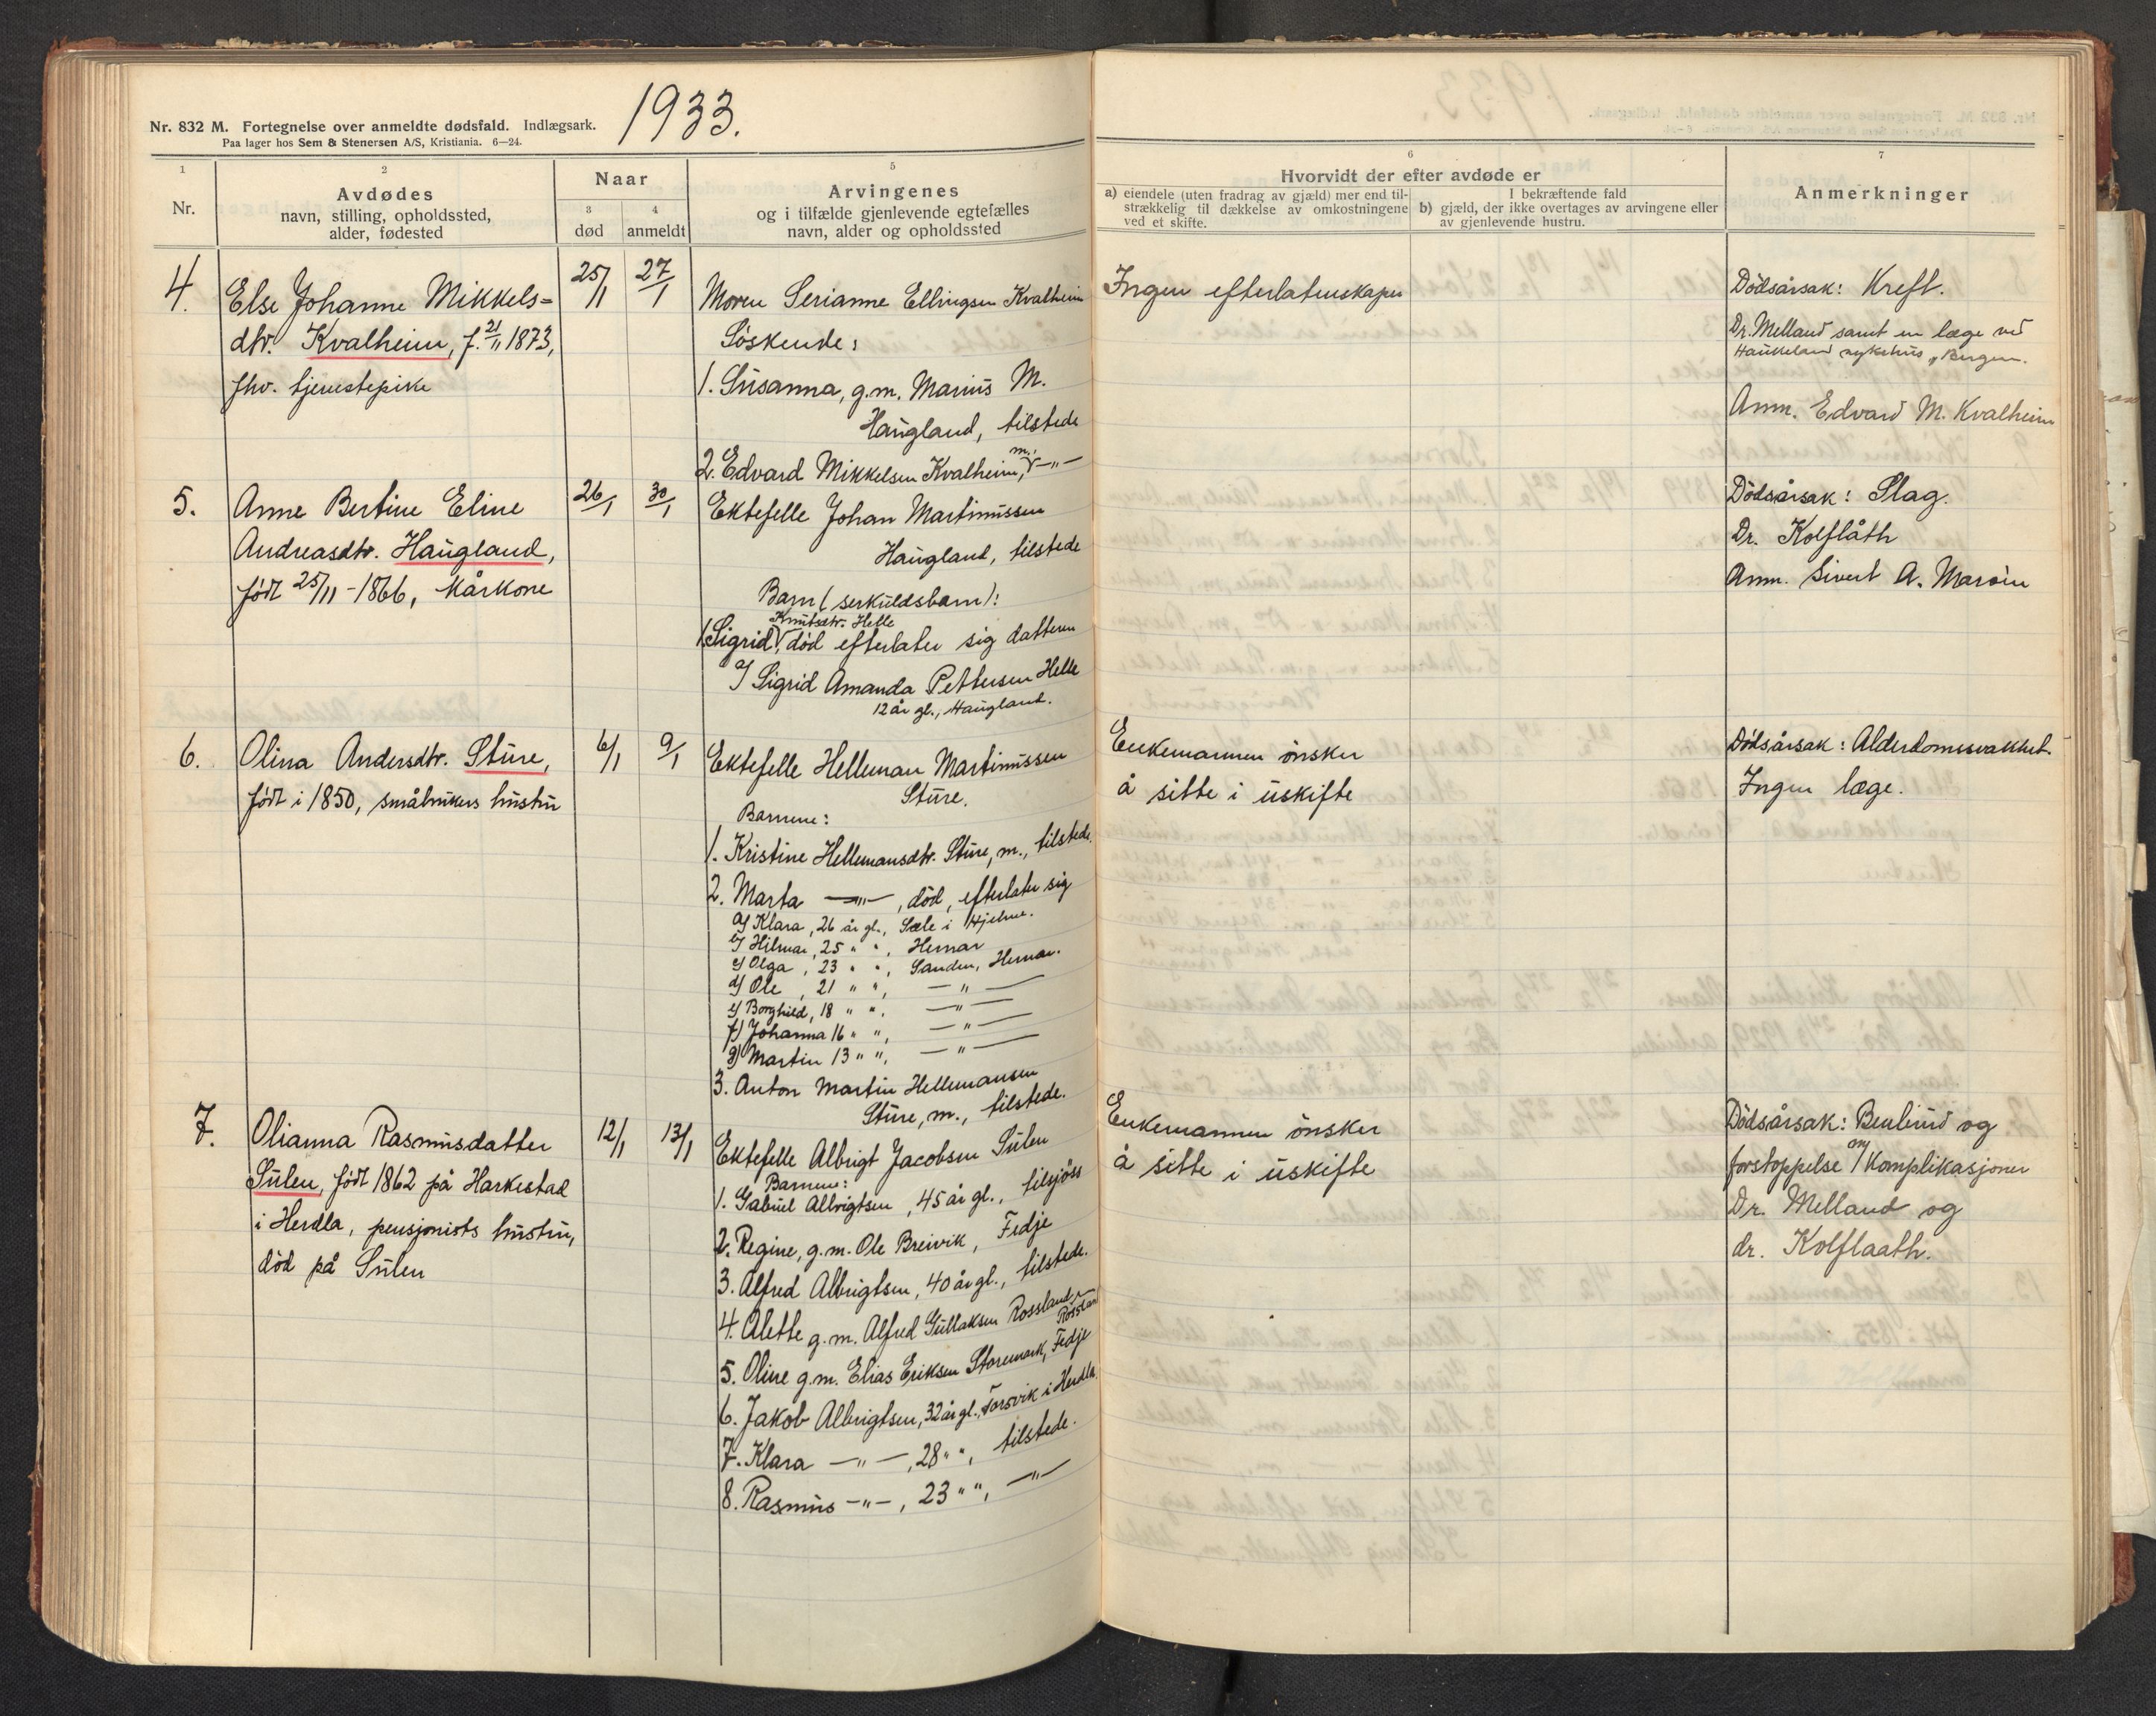 1933.
Nr. 832 M. Fortegnelse over anmeldte dødsfald. Indlægsark.
Paa lager hos Sem & Stenersen A/S, Kristiania. 6—24.
1
Nr.
2
Avdødes
navn, stilling, opholdssted,
alder, fødested
Naar
3
død
4
anmeldt
5
Arvingenes
og i tilfælde gjenlevende egtefælles
navn, alder og opholdssted
6
Hvorvidt der efter avdøde er
a) eiendele (uten fradrag av gjæld) mer end til-
strækkelig til dækkelse av omkostningene
ved et skifte.
I bekræftende fald
b) gjæld, der ikke overtages av arvingene eller
av gjenlevende hustru.
7
Anmerkninger
4.
Else Johanne Mikkels=
dtr. Kvalheim, f. 21/11 1873,
fhv. tjenestepike
25/1
27/1
Moren Serianne Ellingsen Kvalheim
Søskende:
1. Susanna, g.m. Marius M.
Haugland, tilstede
2. Edvard Mikkelsen Kvalheim, m., —"—
Ingen efterlatenskaper
Dödsårsak: Kreft.
Dr. Melland samt en læge ved
Haukeland sykehus, Bergen.
Anm. Edvard M. Kvalheim
5.
Anne Bertine Eline
Andreasdtr. Haugland,
født 25/11-1866, kårkone
26/1
30/1
Ektefelle Johan Martinussen
Haugland, tilstede
Barn (serkuldsbarn):
1. Sigrid Knutsdtr. Helle, död efterlater sig datteren
a/ Sigrid Amanda Pettersen Helle
12 år gl., Haugland.
Dödsårsak: Slag.
Dr. Kolflåth
Anm. Sivert A. Marøin
6.
Olina Andersdtr. Sture,
født i 1850, småbrukers hustru
6/1
9/1
Ektefelle Helleman Martinussen
Sture.
Barnene:
1. Kristine Hellemansdtr. Sture, m., tilstede.
2. Marta —"—, död, efterlater sig
a/ Klara, 26 år gl., Sæle i Hjelme.
b/ Hilmar, 25 " ", Hernar
c/ Olga, 23 " ", Sanden, Hernar.
d/ Ole, 21 " ", —"—
e/ Borghild, 18 " ", —"—
f/ Johanna 16 " ", —"—
g/ Martin 13 " ", —"—
3. Anton Martin Hellemansen
Sture, m., tilstede.
Enkemannen ønsker
å sitte i uskifte
Dödsårsak: Alderdomssvakhet.
Ingen læge.
7.
Olianna Rasmusdatter
Sulen, født 1862 på Harkestad
i Herdla, pensjonists hustru,
död på Sulen
12/1
13/1
Ektefelle Albrigt Jacobsen Sulen
Barnene:
1. Gabriel Albrigtsen, 45 år gl., tilsjöss
2. Regine, g.m. Ole Breivik, Fedje
3. Alfred Albrigtsen, 40 år gl., tilstede.
4. Alette g.m. Alfred Gullaksen Rossland, Rossland
5. Oline g.m. Elias Eriksen Storemark, Fedje
6. Jakob Albrigtsen, 32 år gl., Torsvik i Herdla.
7. Klara —"—, 28 " ", tilstede.
8. Rasmus —"—, 23 " ", —"—
Enkemannen ønsker
å sitte i uskifte
Dödsårsak: Benbrud og
forstoppelse m/ Komplikasjoner
Dr. Melland og
dr. Kolflaath.